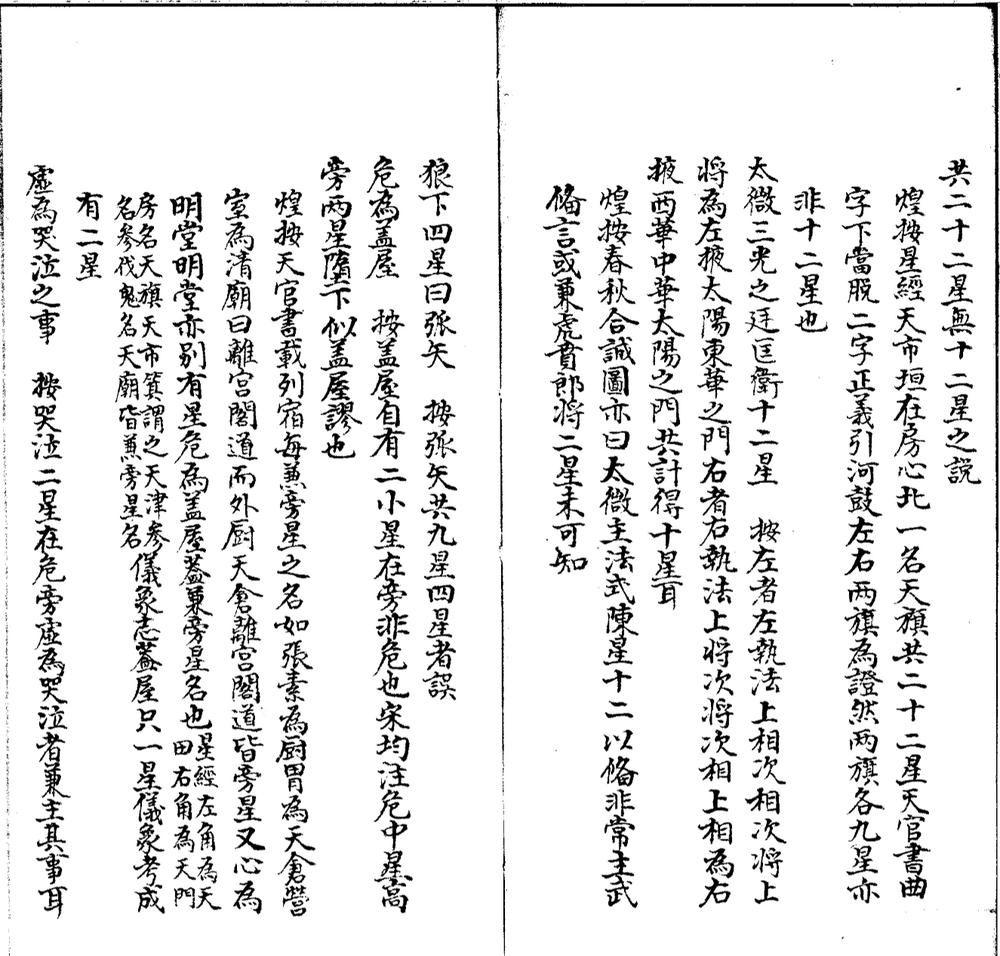 共二十二星無十二星之説
煌按星經天市垣在房心北一名天旗共二十二星天官書曲
字下當脱二字正義引河鼓左右两旗為證然两旗各九星亦
非十二星也
太微三光之廷匡衛十二星　按左者左執法上相次相次將上
將為左掖太陽東華之門右者右執法上將次將次相上相為右
掖西華中華太陽之門共計得十星耳
煌按春秋合誠圖亦曰太微主法式陳星十二以偹非常主武
偹言或兼虎賁郎將二星未可知
狼下四星曰弧矢　按弧矢共九星四星者誤
危為盖屋　按盖屋自有二小星在旁非危也宋均注危中星高
旁两星墮下似盖屋謬也
煌按天官書載列宿每兼旁星之名如張素為厨胃為天倉營
室為清廟曰離宫閣道而外厨天倉離宫閣道皆旁星又心為
明堂明堂亦别有星危為盖屋葢兼旁星名也星經左角為天
田右角為天門
房名天旗天市箕謂之天津參
名参伐鬼名天廟皆兼旁星名
儀象志葢屋只一星儀象考成
有二星
虚為哭泣之事　按哭泣二星在危旁虚為哭泣者兼主其事耳